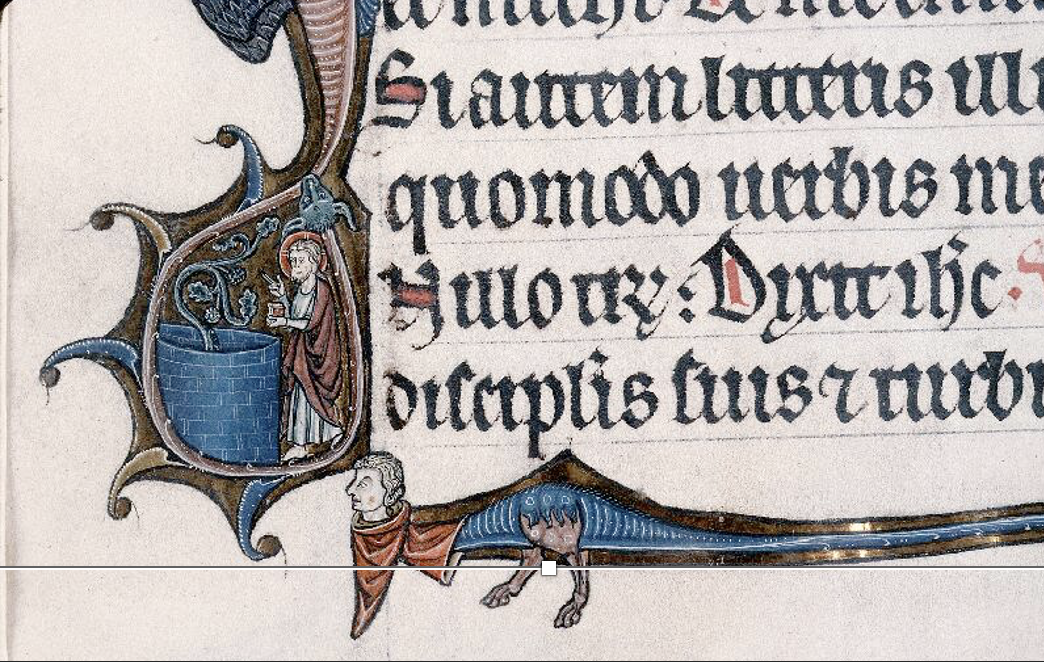 Si autem litteris illi
quomodo uerbis me
N illo : Dixit ihc
disciplis suis ⁊ turbi